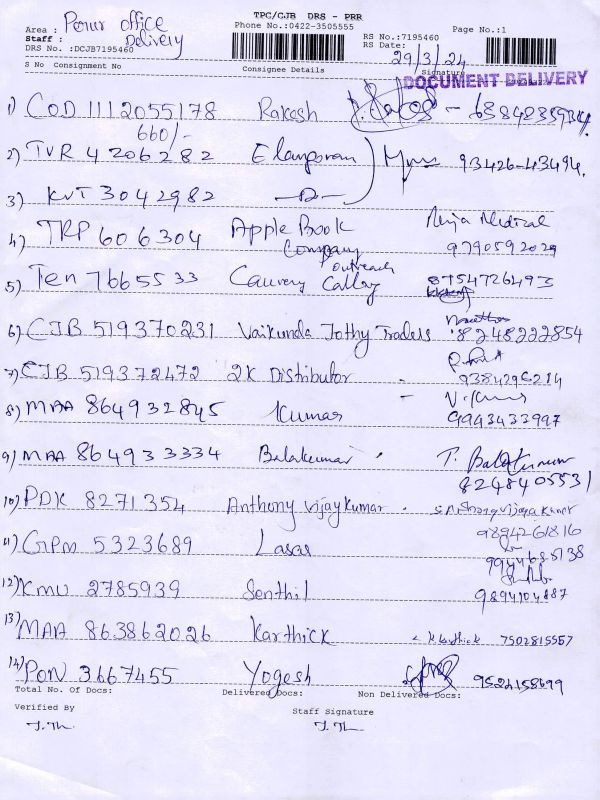 TPC/CJB DRS - PRR
Area : Perur office
Phone No.:0422-3505555
RS No.:7195460
Page No.:1
Staff : Delivery
RS Date: 29/3/24
DRS No. :DCJB7195460
S No Consignment No
Consignee Details
Signature
DOCUMENT DELIVERY
1) COD 1112055178 Rakesh
660/-
2) TVR 4206282 Elangovan 93426-43494.
3) KVT 3042982
4) TRP 606304 Apple Book Company Ninja Medical 9790592029
5) Ten 7665533 Cauvery Calling outreach 8754726493
6) CJB 519370231 Vaikunda Jothy Traders 8248222854
7) CJB 519372472 2K Distributor 9384296214
8) MAA 864932845 Kumar 9943433997
9) MAA 864933334 Balakumar T. Balakumar
8248405531
10) PDK 8271354 Anthony Vijaykumar
9894261816
11) GPM 5323689 Lasar 9944685138
12) KMU 2785939 Senthil 9894104887
13) MAA 863862026 Karthick K. Karthick 7502815557
14) PON 3667455 Yogesh 9524158699
Total No. Of Docs:
Delivered Docs:
Non Delivered Docs:
Verified By
Staff Signature